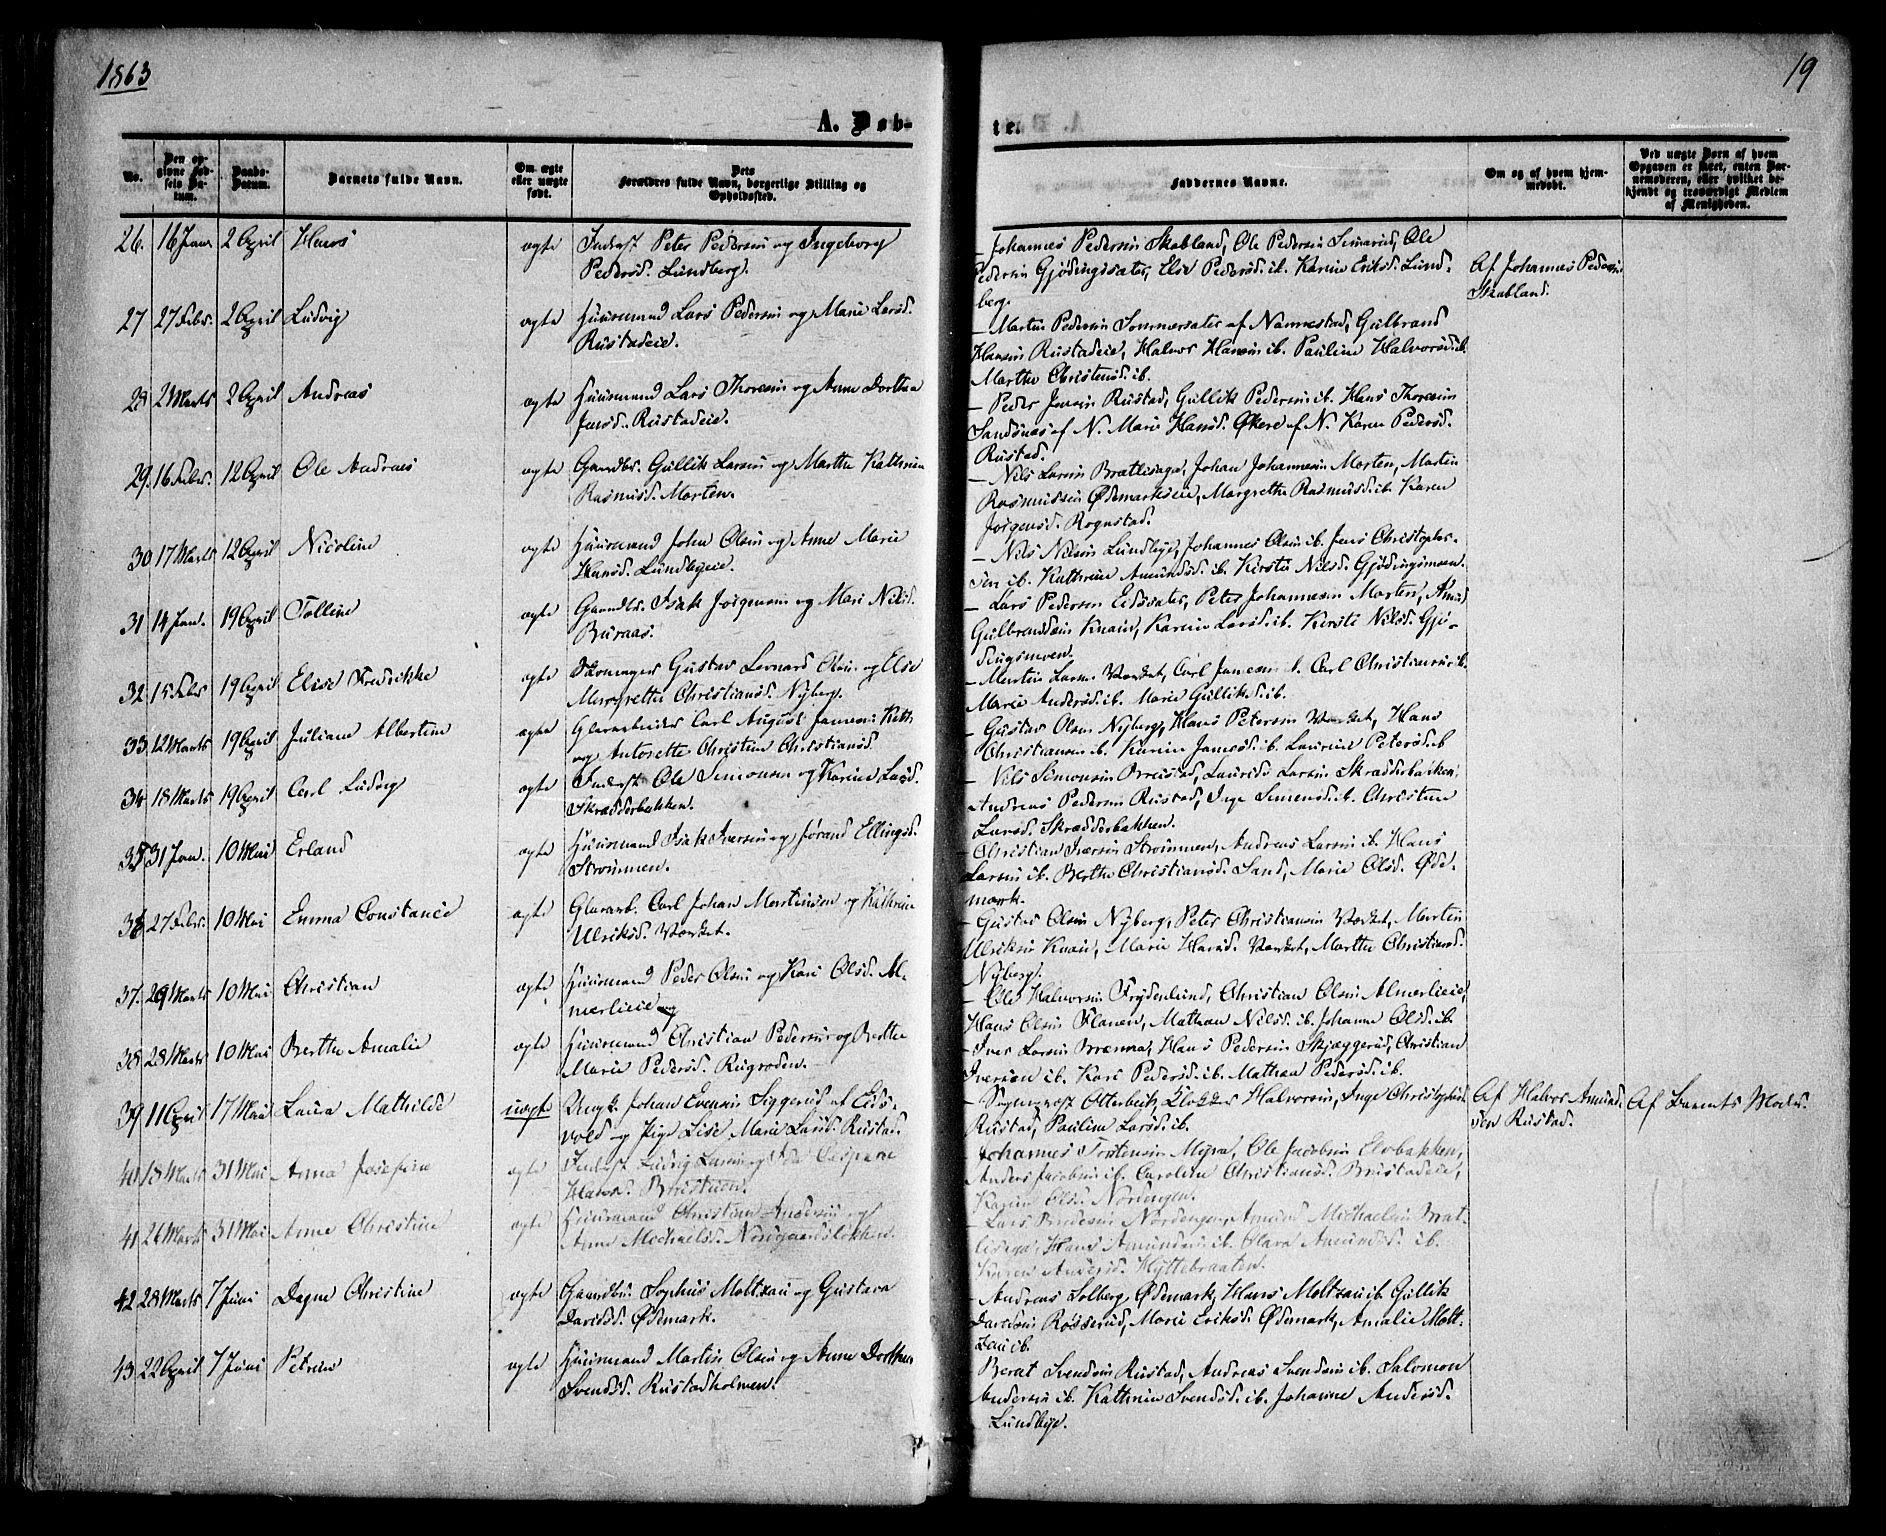 1863
19
A. Døb-
te.
No.
Den op-
givne Fød-
sels Da-
tum.
Daabs-
Datum.
Barnets fulde Navn.
Om ægte
eller uægte
født.
Dets
Forældres fulde Navn, borgerlige Stilling og
Opholdssted.
Faddernes Navne.
Om og af hvem hjem-
medøbt.
Ved uægte Born af hvem
Opgaven er skeet, enten Bar-
nemoderen, eller hvilket be-
kjendt og troværdigt Medlem
af Menigheden.
26. 16 Janr 2 April Hans ægte Inderst Peter Pedersen og Ingeborg
Pedersd. Lundberg.
Johannes Pedersen Skabland, Ole Pedersen Ole
Pedersen Gjødingsæter, Else Pedersd. ib. Karine Eriksd. Lund-
berg.
Af Johannes Pedersen
Skabland.
27 27 Febr. 2 April Ludvig ægte Huusmand Lars Pedersen og Marie Larsd.
Rustadeie.
Martin Pedersen Sommersæter af Nannestad, Gulbrand
Hansen Rustadeie, Halvor Hansen ib. Pauline Halvorsd. ib.
Marthe Christensd. ib.
28 2 Marts 2 April Andreas ægte Huusmand Lars Thoresen og Anne Dorthea
Jensd. Rustadeie.
Peder Jensen Rustad, Gullik Pedersen ib. Hans Thoresen
Sandsnæs af N. Marie Hansd. Økere af N. Karen Pedersd.
Rustad.
29. 16 Febr. 12 April Ole Andreas ægte Gaardbr. Gullik Larsen og Marthe Kathrine
Rasmusd. Morten.
Nils Larsen Brætlisaga, Johan Johannesen Morten, Martin
Rasmussen Ødemarkseie, Margrethe Rasmusd. ib. Karen
Jorgensd. Rognstad.
30 17 Marts 12 April Nicoline ægte Huusmand John Olsen og Anne Marie
Hansd. Lundbyeie.
Nils Nilsen Lundbye, Johannes Olsen ib. Jens Christopher-
sen ib. Kathrine Amundsd. ib. Kirsti Nilsd. Gjødingsmoen.
31 14 Jan. 19 April Tolline ægte Gaardbr. Isak Jorgensen og Mari Nilsd.
Buraas.
Lars Pedersen Eidsæter, Peter Johannesen Morten,
Gulbrandsen Knain, Karine Larsd. ib. Kirsti Nilsd. Gjø-
dingsmoen.
32 15 Febr 19 April Elise Fredrikke ægte Gustav Leonard Olsen og Else
Margrethe Christiansd. Nyberg.
Martin Larsen Værket, Carl Jansen ib. Carl Christiansen ib.
Marie Andersd. ib. Marie Gulliksd. ib.
33 12 Marts 19 April Juliane Albertine ægte Glasarbeider Carl August Jansen
og Antonette Christine Christiansd.
Gustav Olsen Nyberg, Hans Petersen Værket, Hans
Christiansen ib. Karin Jansd. ib. Laurine Petersd. ib
34 18 Marts 19 April Carl Ludvig ægte Inderst Ole Simonsen og Karine Larsd.
Skræderbakken.
Nils Simonsen Laurids Larsen Skræderbakken,
Andreas Pedersen Rustad, Inge Simensd. ib. Christine
Larsd. Skræderbakken.
35 31 Jan. 10 Mai Erland ægte Huusmand Isak Iversen og Jørand Ellingsd.
Strommen.
Christian Iversen Strommen, Andreas Larsen ib. Hans
Larsen ib. Berthe Christiansd. Sand, Marie Olsd. Øde-
mark.
36 27 Febr. 10 Mai Emma Constance ægte Glasarb. Carl Johan Martinsen og Kathrine
Ulriksd. Værket.
Gustav Olsen Nyberg, Peter Christiansen Værket, Martin
Ulriksen Knain, Marie Hansd. Værket, Marthe Christiansd.
Nyberg.
37. 29 Marts 10 Mai Christian ægte Huusmand Peder Olsen og Kari Olsd. Al-
merlieie
Ole Halvorsen Frydenlund, Christian Olsen Almerlieie,
Hans Olsen Flanen, Mathea Nilsd. ib. Johanne Olsd. ib.
38 28 Marts 10 Mai Berthe Amalie ægte Huusmand Christian Pedersen og Berthe
Marie Pedersd. Rugroden.
Iver Larsen Brænna, Hans Pedersen Skjæggerud, Christian
Iversen ib. Kari Pedersd. ib. Mathea Pedersd. ib.
39 11 April 17 Mai Laura Mathilde uægte Ungk. Johan Evensen Siggerud af Eids-
vold og Pige Lise Marie Larsd. Rustad.
Sogneprest Otterbech, Klokker Halvorsen, Inge Christophersd.
Rustad, Pauline Larsd. ib.
Af Halvor Amund-
sen Rustad.
Af Barnets Moder.
40 18 Marts 31 Mai Anna Josefine ægte Inderst Ludvig Larsen og
Hansd.
Johannes Torstensen Myra, Ole Jacobsen Elvebakken,
Anders Jacobsen ib. Caroline Christiansd.
Karine Olsd. Nordengen.
41 26 Marts 31 Mai Anne Christine ægte Huusmand Christian Andersen og
Anne Michaelsd. Nordgaardsløkken.
Lars Nordengen, Amund Michaelsen Bræt-
lisaga, Hans Amundsen ib. Clara Amundsd. ib.
Karen Andersd. Hyttebraaten.
42 28 Marts 7 Juni Dagne Christine ægte Gaardbr. Sophus Moltzau og Gustava
Davidsd. Ødemark.
Andreas Solberg, Ødemark, Hans Moltzau ib. Gullik
Davidsen Røsserud, Marie Eriksd. Ødemark, Amalie Molt-
zau ib.
43 22 April 7 Juni Petrine ægte Huusmand Martin Olsen og Anne Dorthea
Svendsd. Rustadholmen.
Berat Svendsen Rustad, Andreas Svendsen ib. Salomon
Andersen ib. Kathrine Svendsd. ib. Johanne Andersd.
Lundbye.